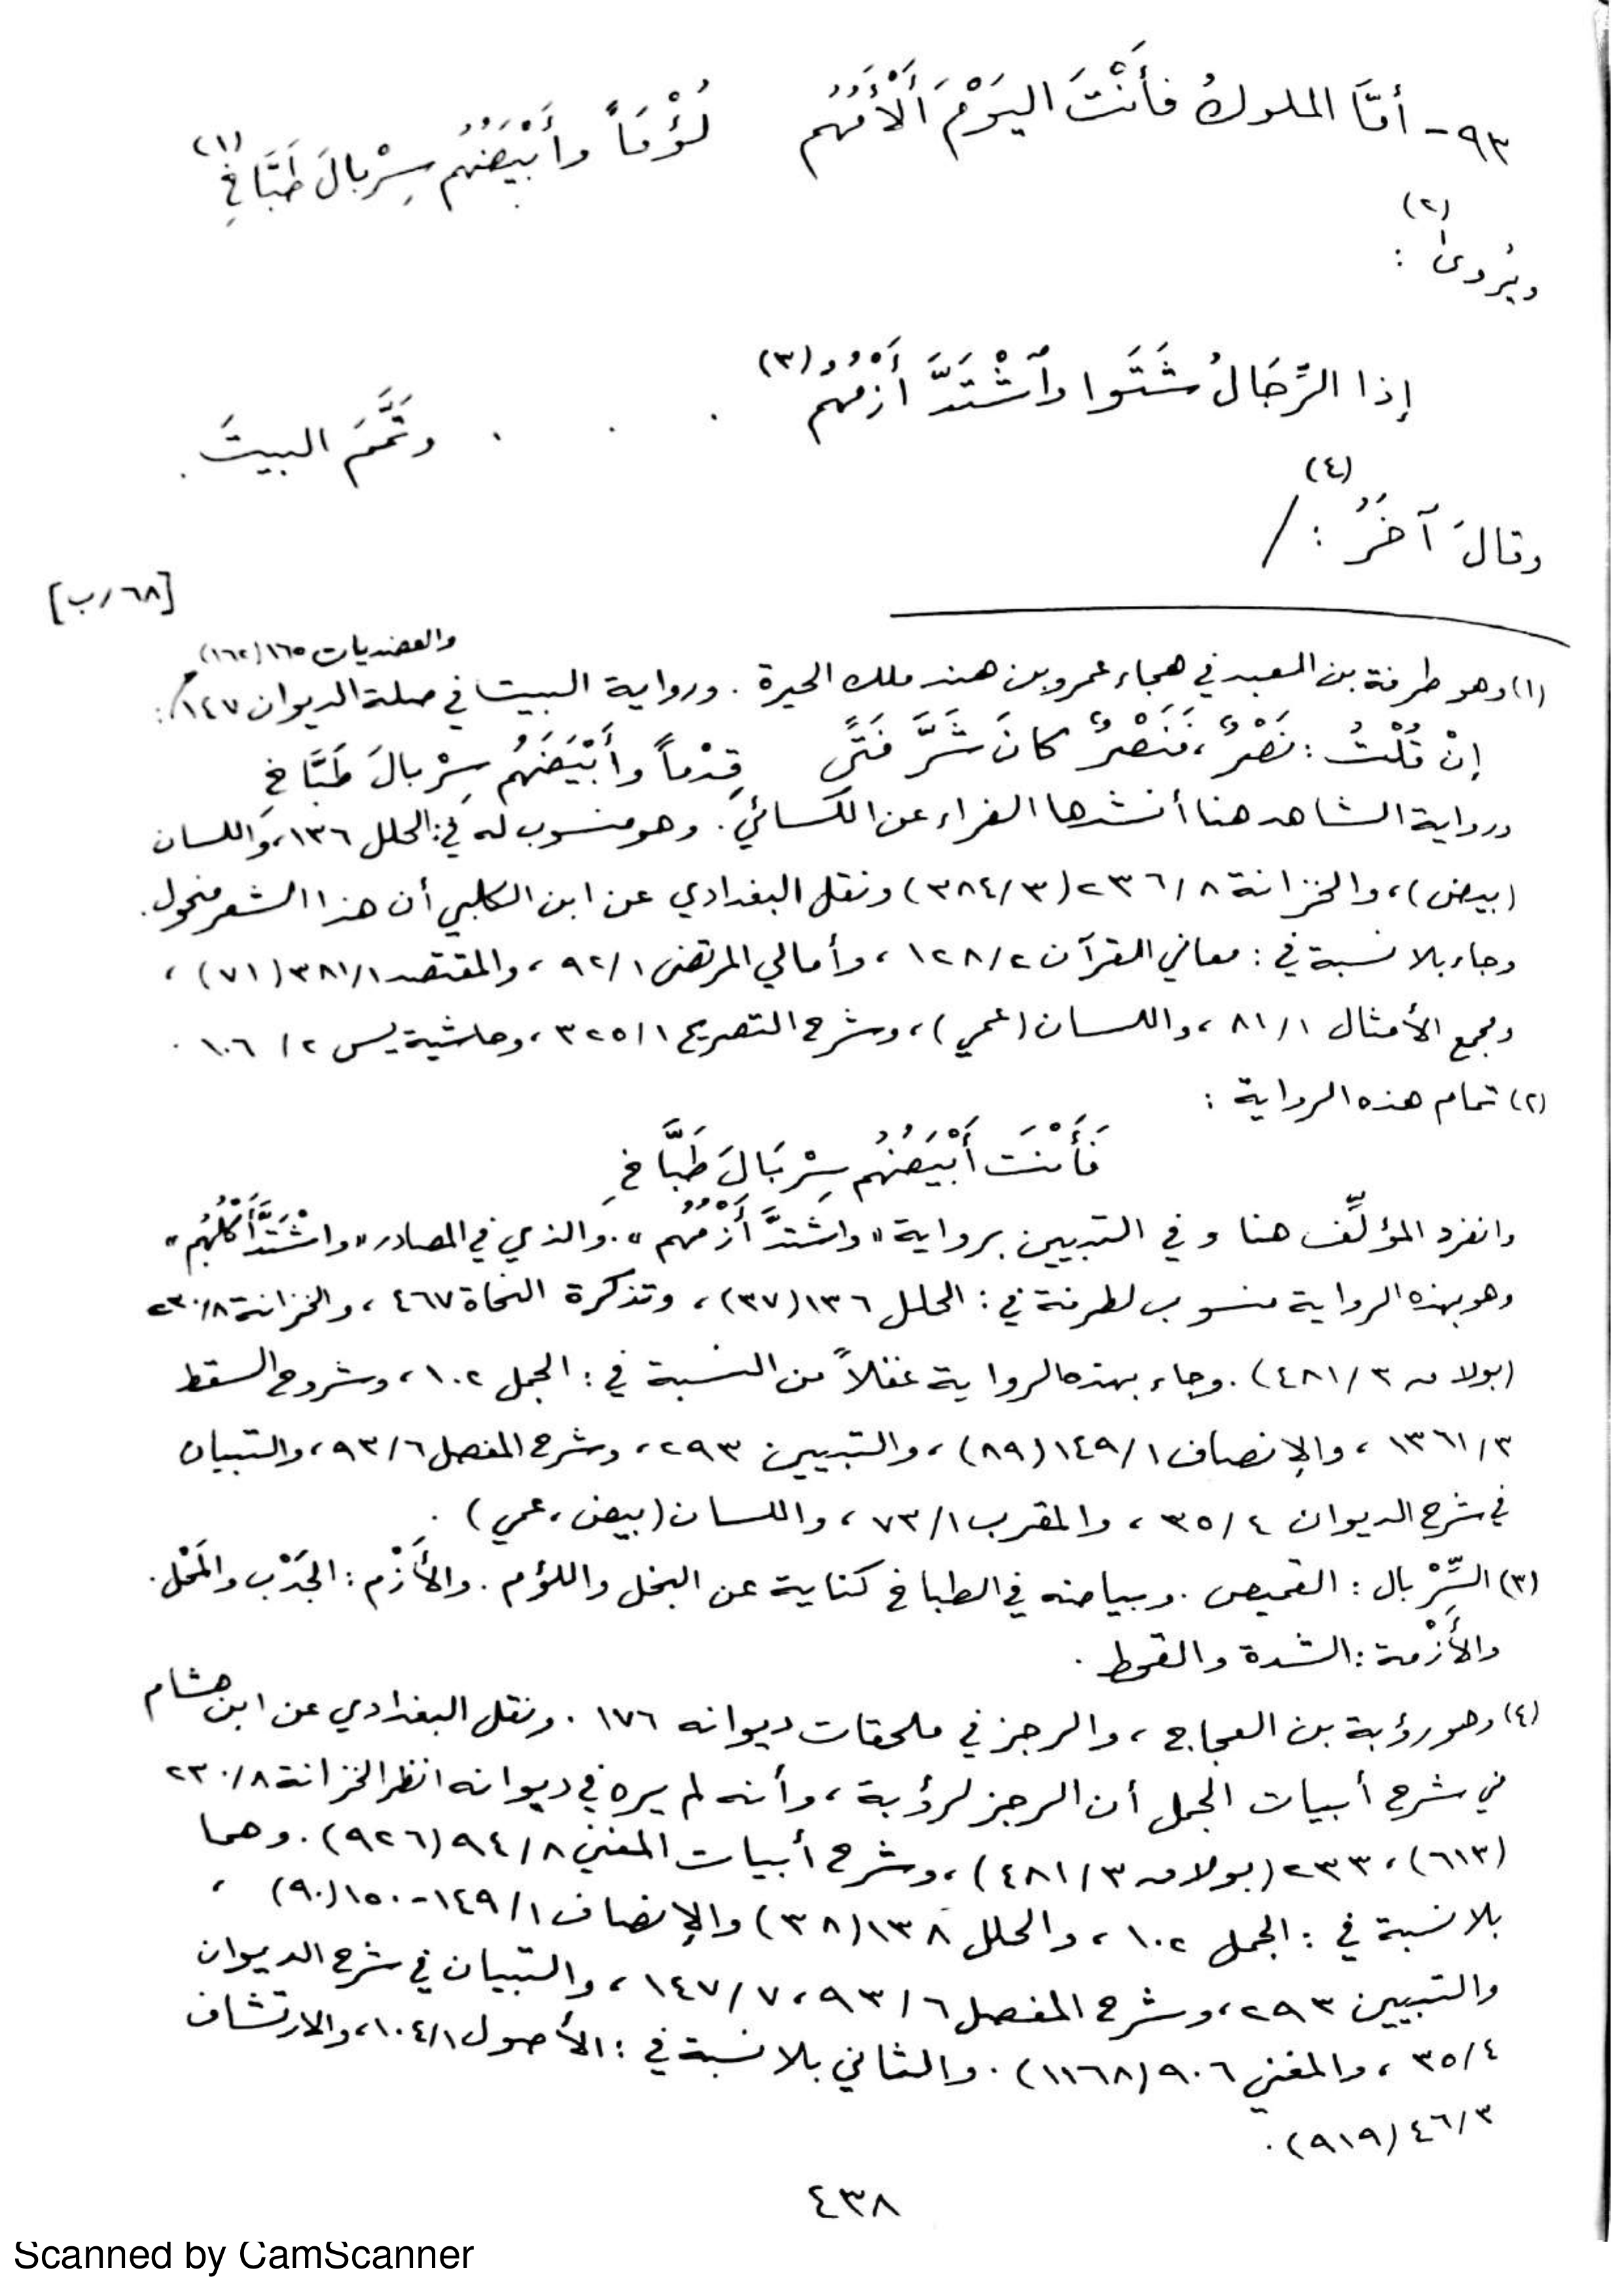 ٩٣- أمَّا الملوكُ فأَنْتَ اليَوْمَ أَلْأَمُهُم لُؤْمَاً وأَبْيَضُهُم سِرْبالَ طَبَّاخِ (١)
ويُروىٰ (٢) :
إذا الرِّجَالُ شَتَوا وٱشْتَدَّ أَزْمُهُم (٣) . . . وتَمَّمَ البيتَ .
وقالَ آخَرُ (٤) : /
[٦٨/ب]
(١) وهو طرفة بن العبد في هجاء عمرو بن هند ملك الحيرة . ورواية البيت في صلة الديوان ١٤٧ والعضديات ١٦٥ (١٦٢) :
إنْ قُلْتُ : نَصْرٌ ، فَنَصْرٌ كانَ شَرَّ فَتًى قِدْماً وأَبْيَضَهُم سِرْبالَ طَبَّاخِ
ورواية الشاهد هنا أنشدها الفراء عن الكسائي . وهو منسوب له في : الحلل ١٣٦ ، واللسان
(بيض) ، والخزانة ٨/ ٢٣٦ (٣/ ٣٨٤) ونقل البغدادي عن ابن الكلبي أن هذا الشعر منحول .
وجاء بلا نسبة في : معاني القرآن ٢/ ١٢٨ ، وأمالي المرتضى ١/ ٩٢ ، والمقتصد ١/ ٣٨١ (٧١) ،
ومجمع الأمثال ١/ ٨١ ، واللسان (عمي) ، وشرح التصريح ١/ ٣٢٥ ، وحاشية يس ٢/ ١٠٦ .
(٢) تمام هذه الرواية :
فَأَنْتَ أَبْيَضُهُم سِرْبَالَ طَبَّاخِ
وانفرد المؤلِّف هنا و في التبيين برواية « واشتدَّ أَزْمُهُم » . والذي في المصادر « واشْتَدَّ أَكْلُهُم »
وهو بهذه الرواية منسوب لطرفة في : الحلل ١٣٦ (٣٧) ، وتذكرة النحاة ٤٦٧ ، والخزانة ٨/ ٢٣٠
(بولاق ٣/ ٤٨١) . وجاء بهذه الرواية غفلاً من النسبة في : الجمل ١٠٢ ، وشروح السقط
٣/ ١٣٦١ ، والإنصاف ١/ ١٤٩ (٨٩) ، والتبيين ٢٩٣ ، وشرح المفصل ٦/ ٩٣ ، والتبيان
في شرح الديوان ٤/ ٣٥ ، والمقرب ١/ ٧٣ ، واللسان (بيض ، عمي) .
(٣) السِّرْبال : القميص . وبياضه في الطباخ كناية عن البخل واللؤم . والأَزْم : الجَدْب والمَحْل .
والأَزْمة : الشدة والقحط .
(٤) وهو رؤبة بن العجاج ، والرجز في ملحقات ديوانه ١٧٦ . ونقل البغدادي عن ابن هشام
في شرح أبيات الجمل أن الرجز لرؤبة ، وأنه لم يره في ديوانه انظر الخزانة ٨/ ٢٣٠
(٦١٣) ، ٢٣٣ (بولاق ٣/ ٤٨١) ، وشرح أبيات المغني ٨/ ٩٤ (٩٢٦) . وهما
بلا نسبة في : الجمل ١٠٢ ، والحلل ١٣٨ (٣٨) والإنصاف ١/ ١٤٩-١٥٠ (٩٠) ،
والتبيين ٢٩٣ ، وشرح المفصل ٦/ ٩٣ ، ٧/ ١٤٧ ، والتبيان في شرح الديوان
٤/ ٣٥ ، والمغني ٩٠٦ (١١٦٨) . والثاني بلا نسبة في : الأصول ١/ ١٠٤ ، والارتشاف
٣/ ٤٦ (٩١٩) .
٤٣٨
Scanned by CamScanner